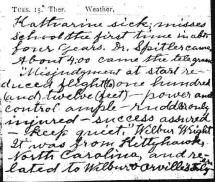 TUES. 15. Ther. Weather.
Katharine sick, misses
school the first time in abt
four years. Dr. Spitler came.
About 4.00 came the telegram
"Misjudgment at start re-
duced flight (to) one hundred
(and) twelve (feet) - power and
control ample - rudder only
injured - success assured
keep quiet." Wilbur Wright
It was from Kittyhawk,
North Carolina, and re-
lated to Wilbur & Orville's